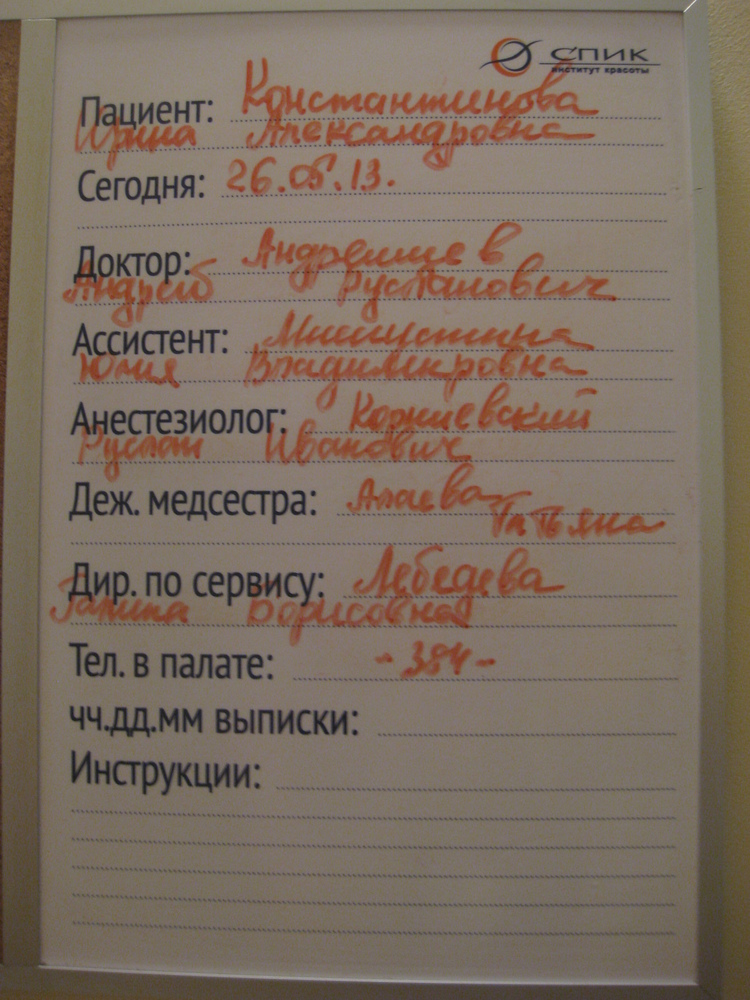 СПИК
институт красоты
Пациент: Константинова
Ирина Александровна
Сегодня: 26.05.13.
Доктор: Андреищев
Андрей Русланович
Ассистент: Мишустина
Юлия Владимировна
Анестезиолог: Корниевский
Руслан Иванович
Деж. медсестра: Алаева
Татьяна
Дир. по сервису: Лебедева
Галина Борисовна
Тел. в палате: -384-
чч.дд.мм выписки:
Инструкции: